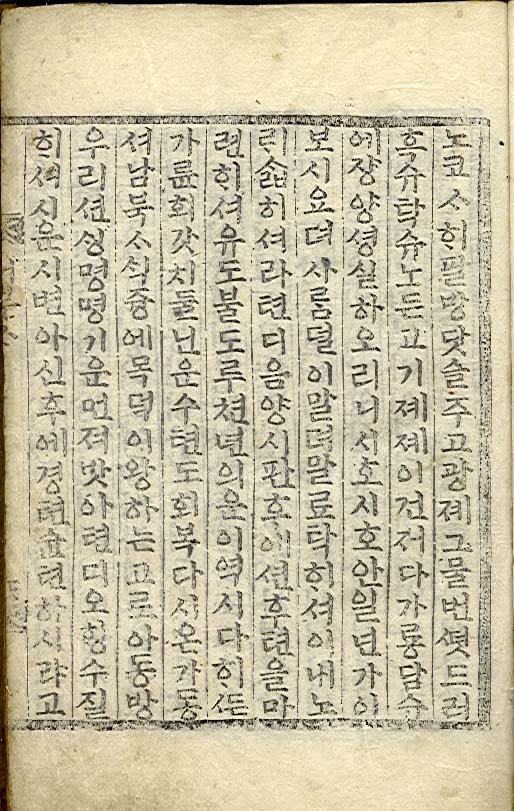 노코ᄉᆞ히팔방닷슬주고광졔그물번셧드러
흑슈탁슈노든고기졔졔이건저다가룡담슈
에쟝양셩실하오리니서호시호안일년가이
보시오뎌사ᄅᆞᆷ덜이말뎌말료탁히셔이내노
리히셔라텬디음양시판후에션후텬을마
련히셔유도불도루쳔년의운이역시다히
가륜회갓치둘닌운수텬도회복다시온가동
셔남북ᄉᆞ식즁에목덕이왕하는고로아동방
우리션ᄉᆡᆼ명명기운먼져맛아텬디오ᄒᆡᆼ수질
히셔시운시변아신후에경텬슌텬하시라고